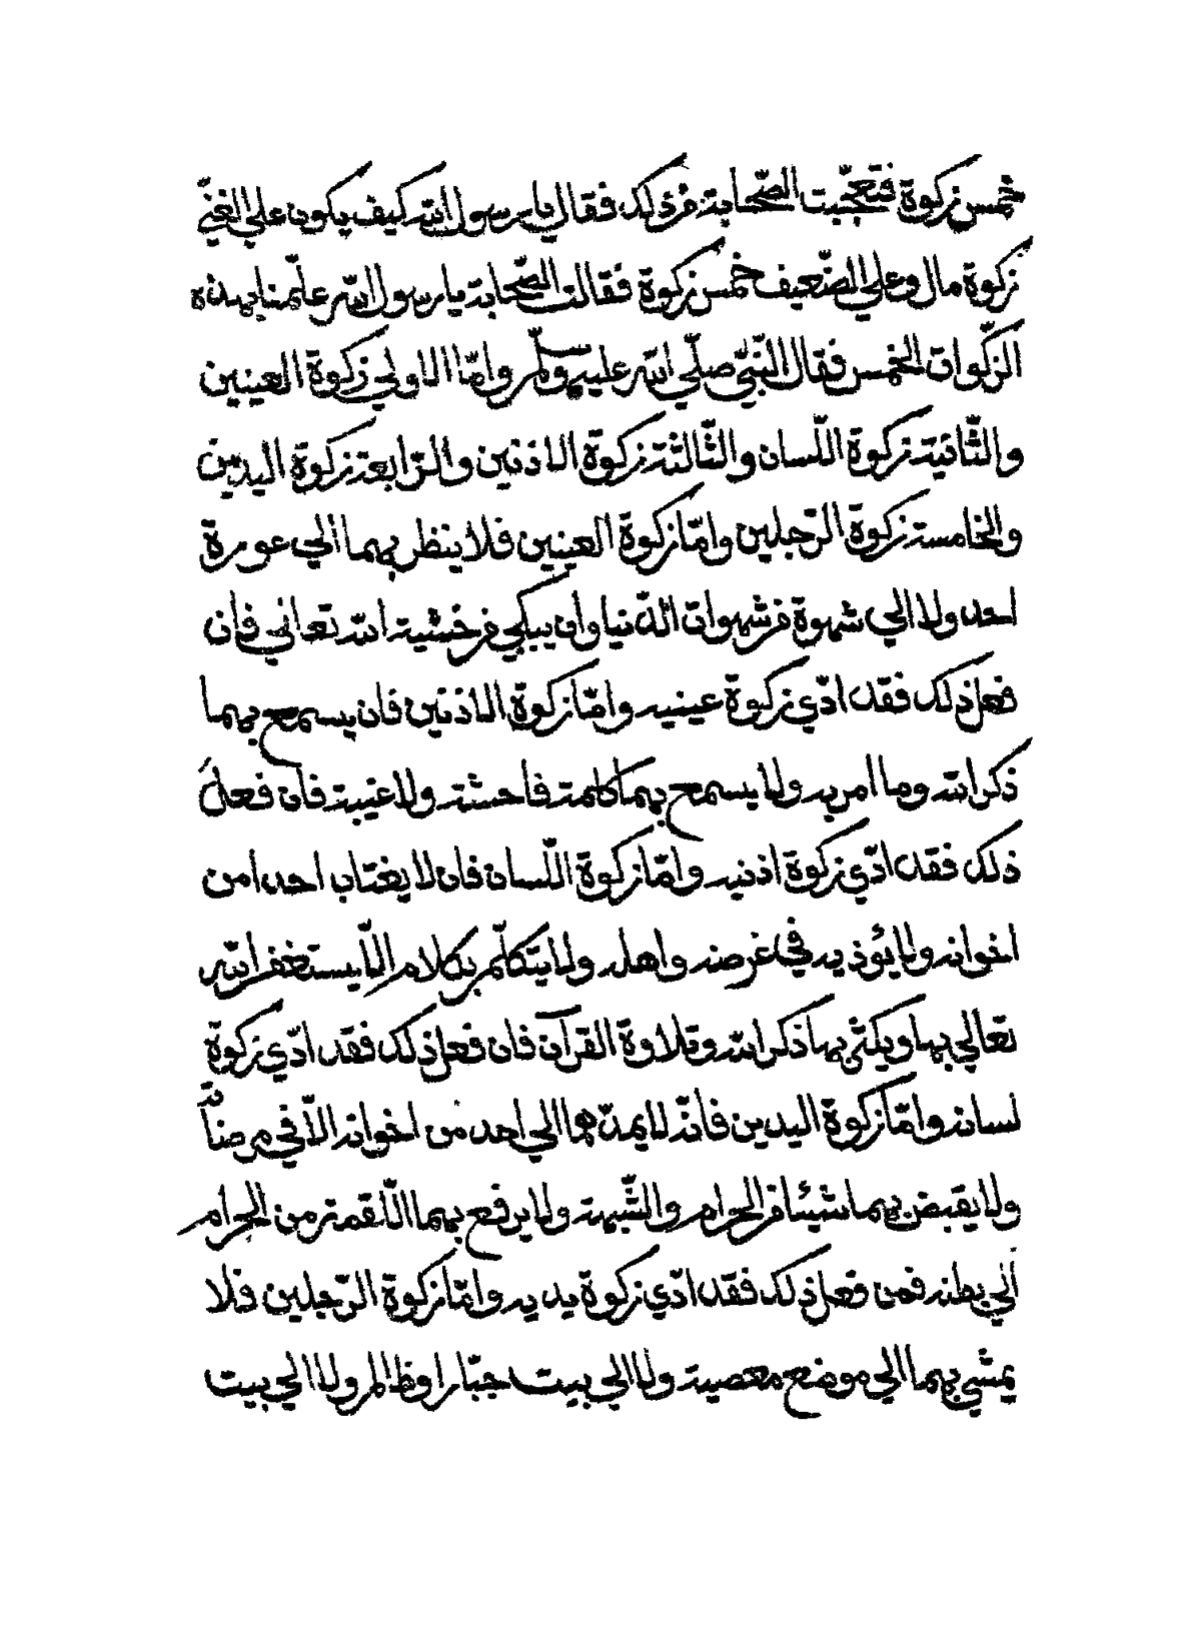 خمس زكوة فتعجّبت الصّحابة من ذلك فقال يا رسول الله كيف يكون علي الغنيّ
زكوة مال وعلي الضّعيف خمس زكوة فقالت الصّحابة يا رسول الله علّمنا بهذه
الزّكوات الخمس فقال النّبيّ صلّي الله عليه وسلّم وامّا الاولي زكوة العينين
والثّانية زكوة اللّسان والثّالثة زكوة الاذنين والرّابعة زكوة اليدين
والخامسة زكوة الرّجلين وامّا زكوة العينين فلا ينظر بهما الي عورة
احد ولا الي شهوة من شهوات الدّنيا وان يبكي من خشية الله تعالي فان
فعل ذلك فقد ادّي زكوة عينيه وامّا زكوة الاذنين فان يسمع بهما
ذكر الله وما امر به ولا يسمع بهما كلمة فاحشة ولا غيبة فان فعل
ذلك فقد ادّي زكوة اذنيه وامّا زكوة اللّسان فان لا يغتاب احدا من
اخوانه ولا يؤذيه في عرضه واهله ولا يتكلّم بكلام الّا يستغفر الله
تعالي بها ويكثر بها ذكر الله وتلاوة القرآن فان فعل ذلك فقد ادّي زكوة
لسانه وامّا زكوة اليدين فانّه لا يمدّهما الي احد من اخوانه الّا في مرضاة
ولا يقبض بهما شيئا من الحرام والشّبهة ولا يرفع بهما اللّقمة من الحرام
الي بطنه فمن فعل ذلك فقد ادّي زكوة يديه وامّا زكوة الرّجلين فلا
يمشي بهما الي موضع معصية ولا الي بيت جبّار او ظالم ولا الي بيت